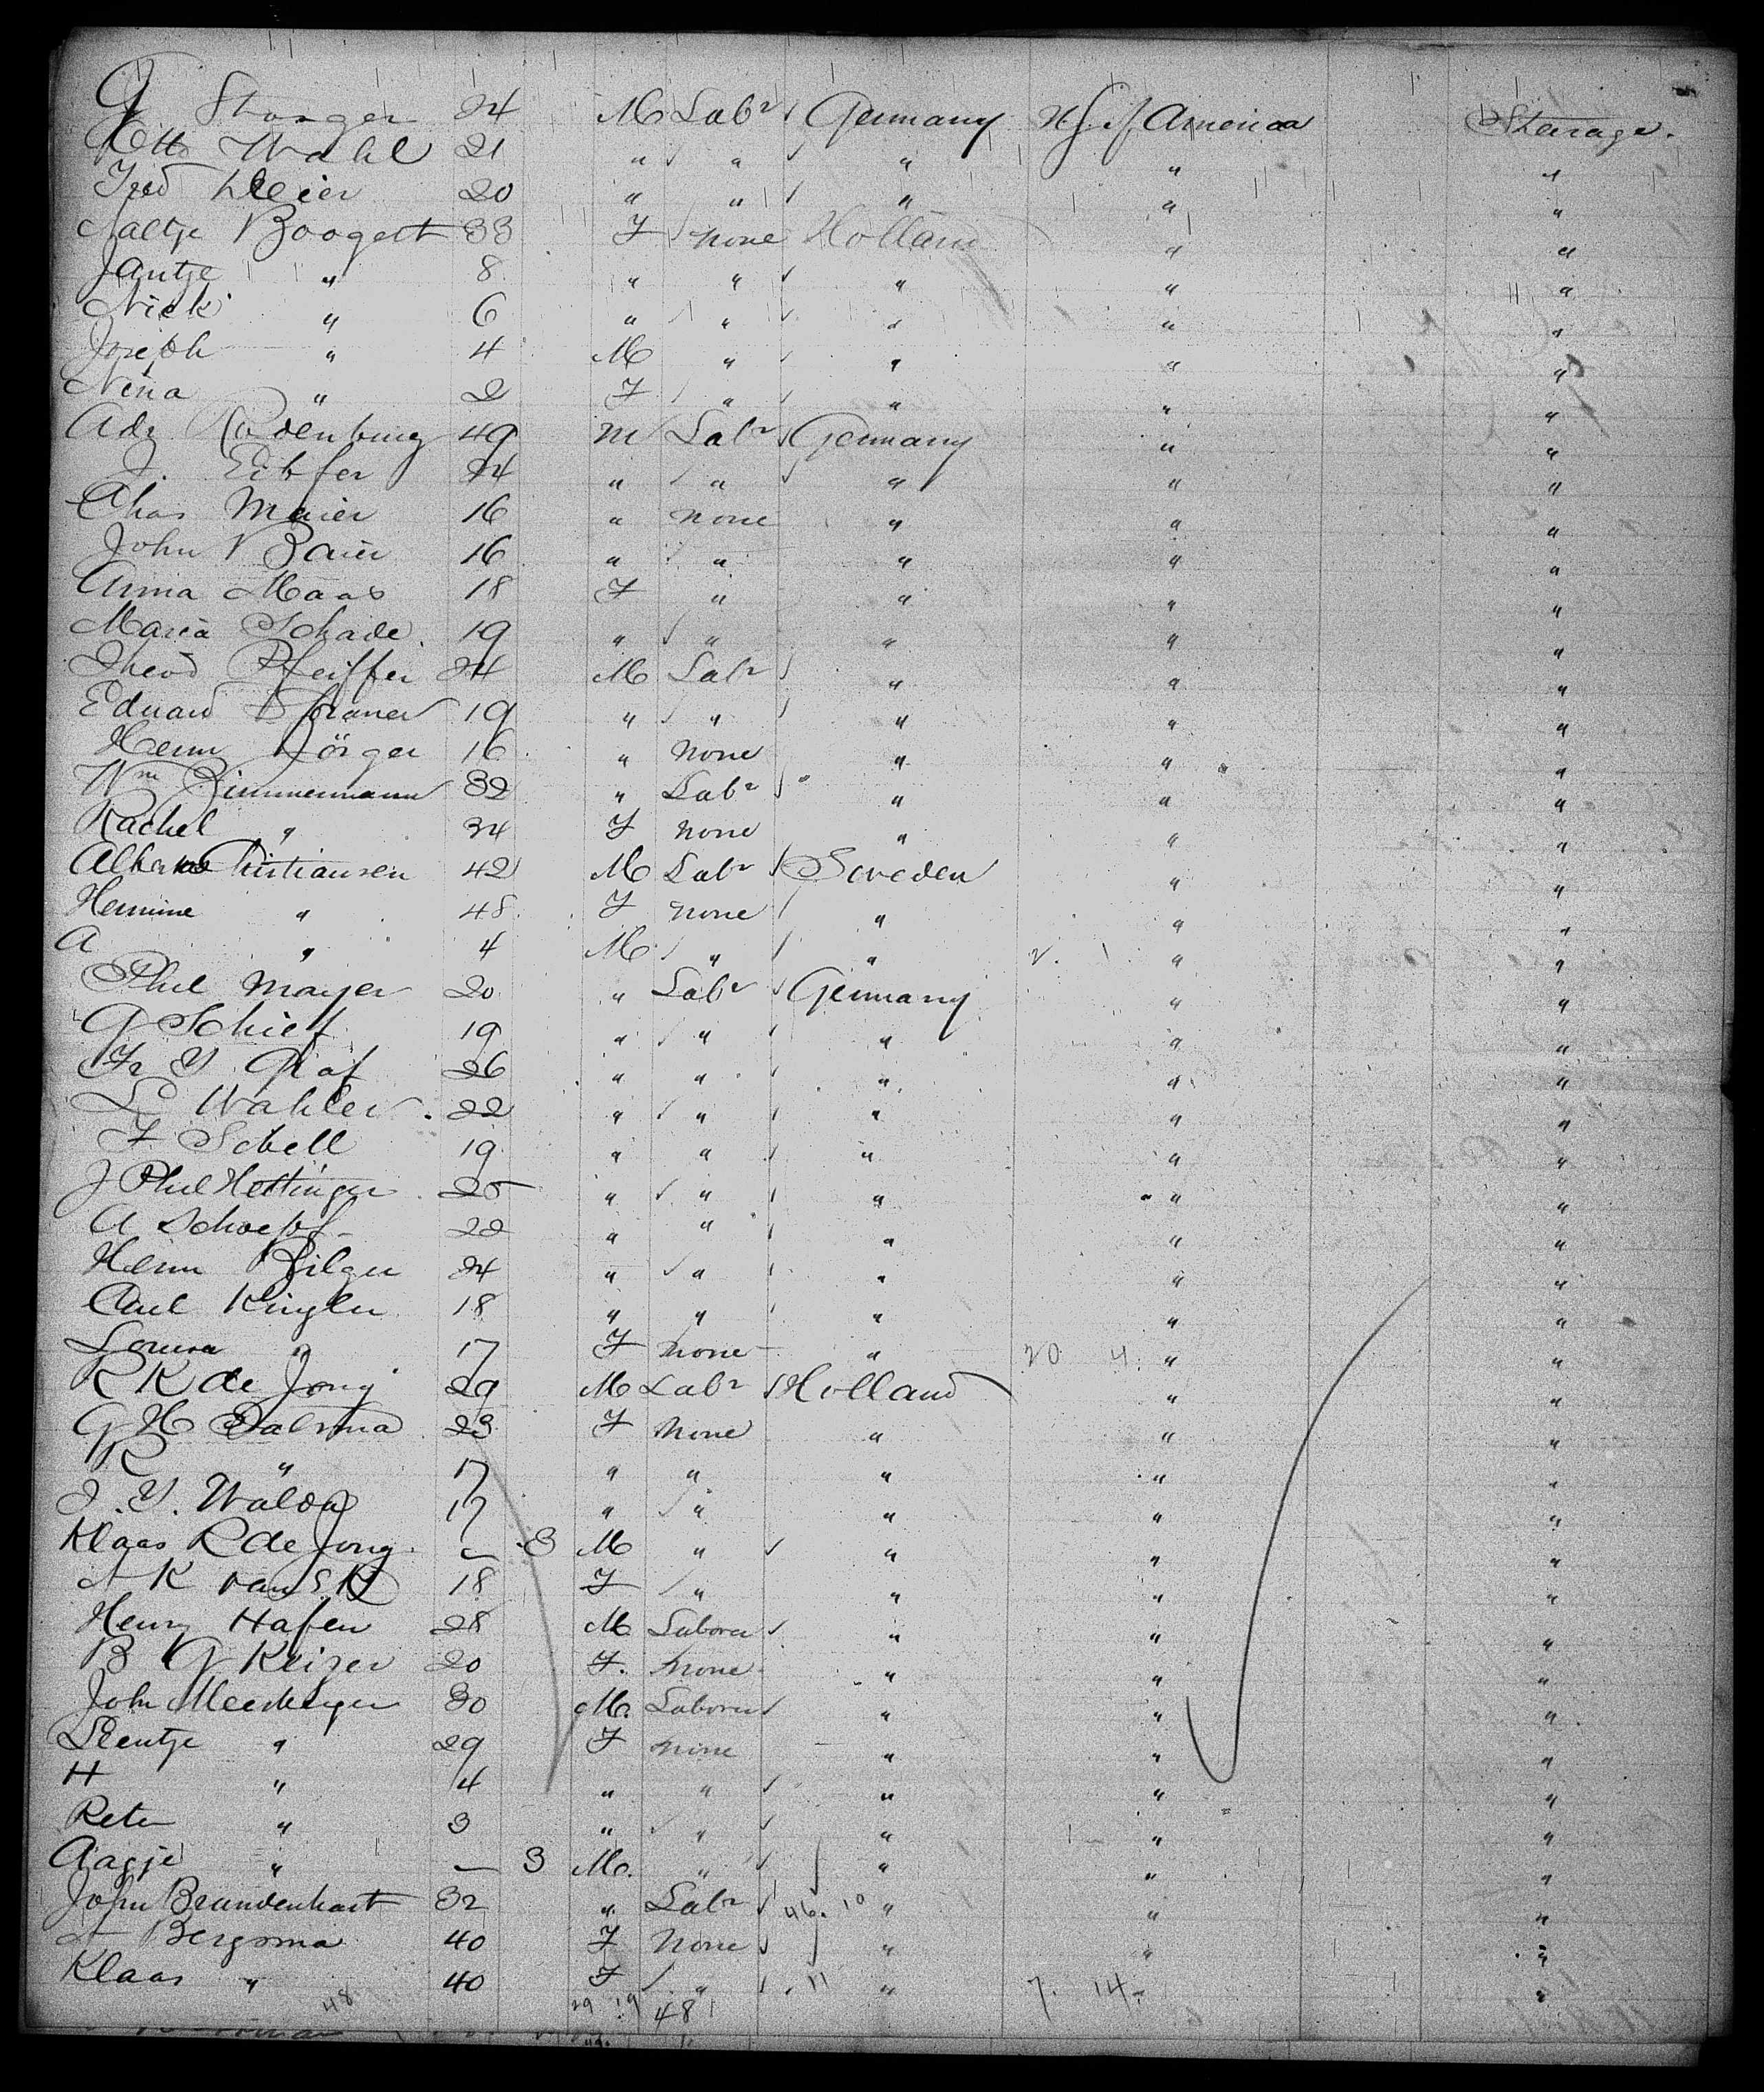 G Stanger 24 M Labr Germany U S of America Steerage.
Otto Wahl 21 " " " " "
Fred Meier 20 " " " " "
Aaltje Boogert 33 F none Holland " "
Jantje " 8 " " " " "
Niek " 6 " " " " "
Joseph " 4 M " " " "
Nina " 2 F " " " "
Adg Rodenburg 49 M Labr Germany " "
J. 24 " " " " "
Chas Maier 16 " none " " "
John Baier 16 " " " " "
Anna Maas 18 F " " " "
Maria Schade 19 " " " " "
Theod Pfeiffer 24 M Labr " " "
Eduard 19 " " " " "
Herm 16 " none " " "
Wm Zimmermann 32 " Labr " " "
Rachel " 34 F none " " "
Christiansen 42 M Labr Sweden " "
Hermine " 48 F none " " "
A " 4 M " " 2. 1 " "
Phil Mayer 20 " Labr Germany " "
G Schief 19 " " " " "
Fr Graf 26 " " " " "
L Wahler 22 " " " " "
F Schell 19 " " " " "
J Phil Hettinger 25 " " " " "
A Schoepf 22 " " " " "
Herm Bilger 24 " " " " "
Carl Kingler 18 " " " " "
" 17 F none " 20 4 " "
R K de Jong 29 M Labr Holland " "
G H 23 F none " " "
R " 17 " " " " "
17 " " " " "
Klaas R de Jong – 3 M " " " "
K van 18 F " " " "
Henry Hafen 28 M Laborer " " "
B G Keizer 20 F. none " " "
John 30 M. Laborer " " "
" 29 F none " " "
H " 4 " " " " "
Peter " 3 " " " " "
Aagje " – 3 M. " " " "
John Brandenhart 32 " Labr 46. 10 " " "
Bergsma 40 F None " " "
Klaas " 40 F " 11 " 7. 14. "
48 29 19 48